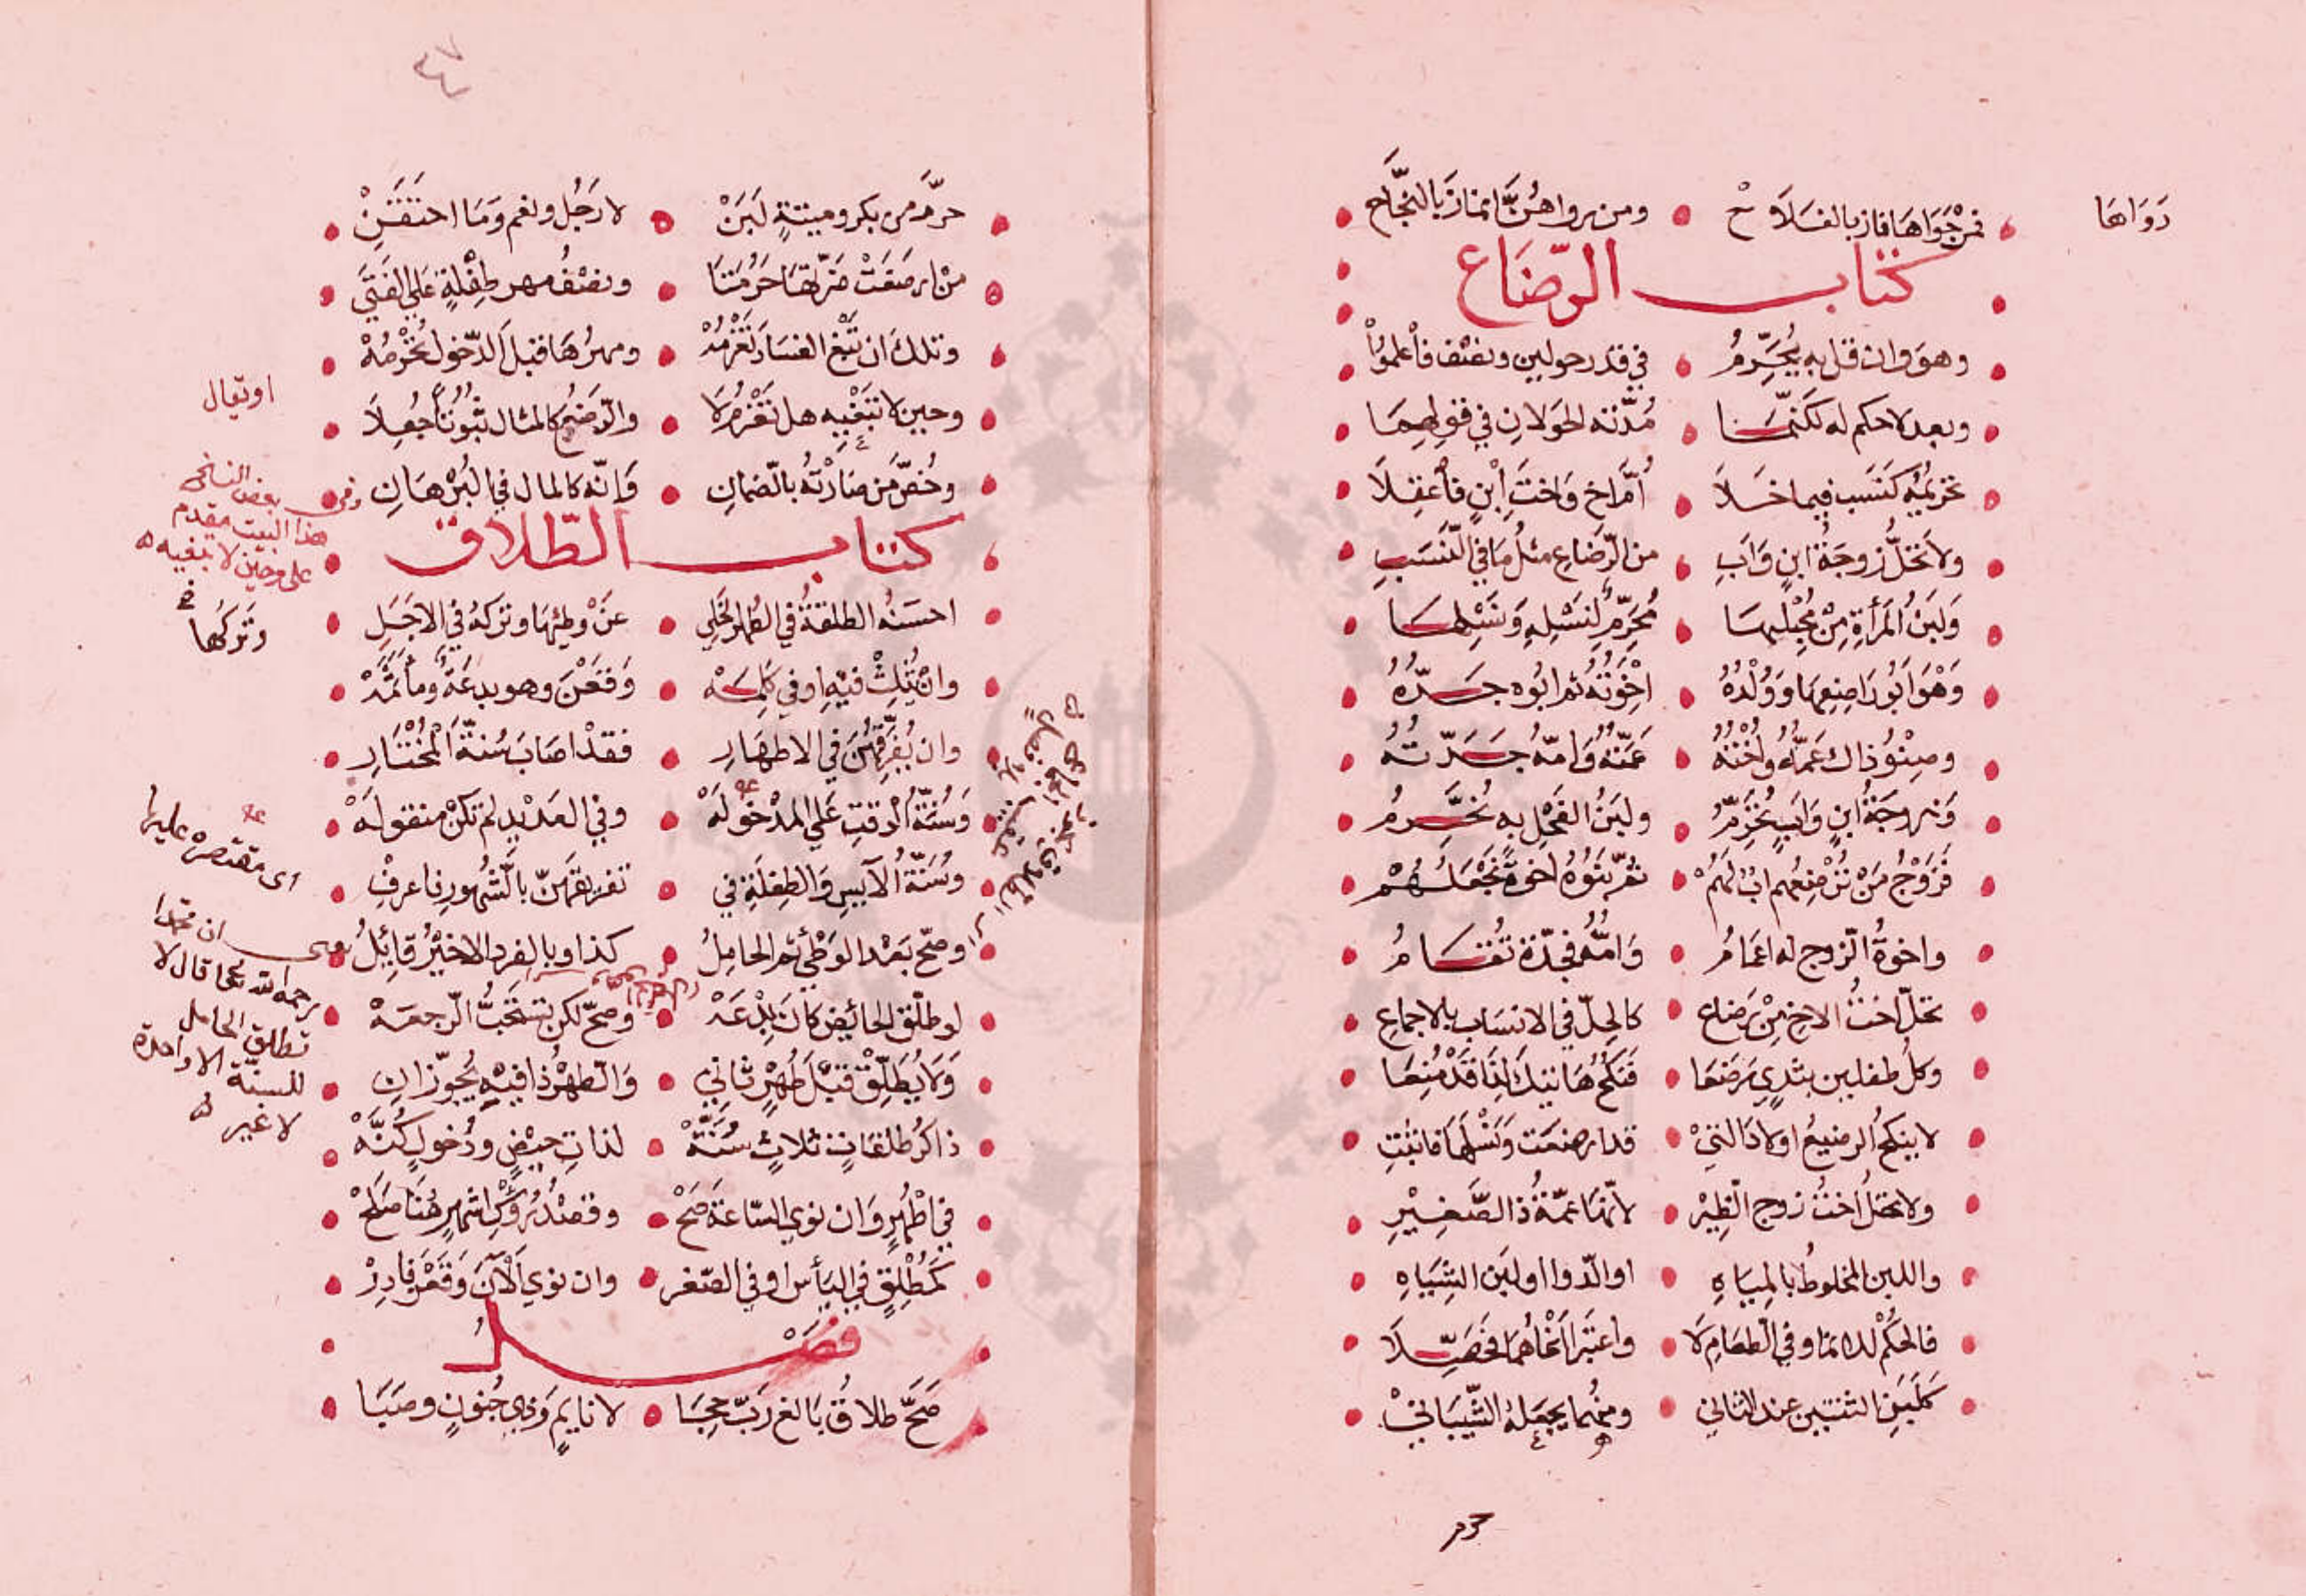 فمن حواها فاز بالفلاح ومن رواهن امتاز بالنجاح
دواها
كتاب الرضاع
وهو وان قل به يحرم في قدر حولين ونصف فاعلموا
وبعد لا حكم له ككنما مدته الحولان في قوليهما
تحريمه كنسب فيما خلا أم اخ واخت ابن فاعقلا
ولا تحل زوجة ابن واب من الرضاع مثل ما في النسب
ولبن المرأة من محبلها محرم لنسله ونسلها
وهو ابو راضعها وولده اخوته ثم ابوه جده
وصنو ذاك عمه واخته عمته وامه جدته
وزوجة ابن واب تحرم ولبن الفحل به نحرم
فزوج من ترضعهم اب لهم ثم بنوه اخوة نجعلهم
واخوة الزوج له اعمام وامه في جدة تقام
تحل اخت الاخ من رضاع كالحل في الانساب بالاجماع
وكل طفلين بثدي رضعا فنكح هاتيك لذا قد منعا
لا ينكح الرضيع اولاد التي قد ارضعت ونسلها فاثبت
ولا تحل اخت زوج الظئر لانها عمة ذا الصغير
واللبن المخلوط بالمياه او الدوا او لبن الشياه
فالحكم للاتما وفي الطعام لا واعتبرا نحاهما فحصلا
كلبن الثنتين عند الثاني ومنهما يجعله الشيباني
حرم
٤٧
حرم من بكر وميتة لبن لا رجل ونعم وما احتقن
من ارضعت ضرتها حرمتا ونصف مهر طفلة على الفتى
وتلك ان تبغ الفساد تغرمه ومهرها قبل الدخول تحرمه
وحين لا تبغيه هل تغرم لا والرضع كالمال ثبوتا جعلا
او يقال
وخص من ضارته بالضمان وانه كالمال في البرهان
وفي بعض النسخ
هذا البيت مقدم
على وحين لا تبغيه
كتاب الطلاق
احسنه الطلقة في الطهر الخلي عن وطئها وتركه في الاجل
وتركها خ
وان يثلث فيه او في كلمه وقعن وهو بدعة ومأثمه
وان يفرقهن في الاطهار فقد اصاب سنة المختار
وسنة الوقت على المدخوله وفي العديد لم تكن منقوله
اى مقتصرة عليها
وسنة الآيس والطفلة في تفريقهن بالشهور فاعرف
وصح بعد الوطئ ثم الحامل كذا وبالفرد الاخير قائل
يعنى ان محمدا
رحمه الله تعالى قال لا
تطلق الحامل
للسنة الا واحدة
لا غير
لو طلق الحائض كان بدعه وصح لكن تستحب الرجعه
ولا يطلق قبل طهر ثاني والطهر ذا فيه يجوزان
ذاكر طلقات ثلاث سنة لذات حيض ودخول كنه
في اطهر وان نوي الساعة صح وقصد رؤس اشهر هنا صلح
كمطلق في اليأس او في الصغر وان نوي الآن وقعن فادر
فصل
صح طلاق بالغ رب حجا لا نايم وذي جنون وصبا